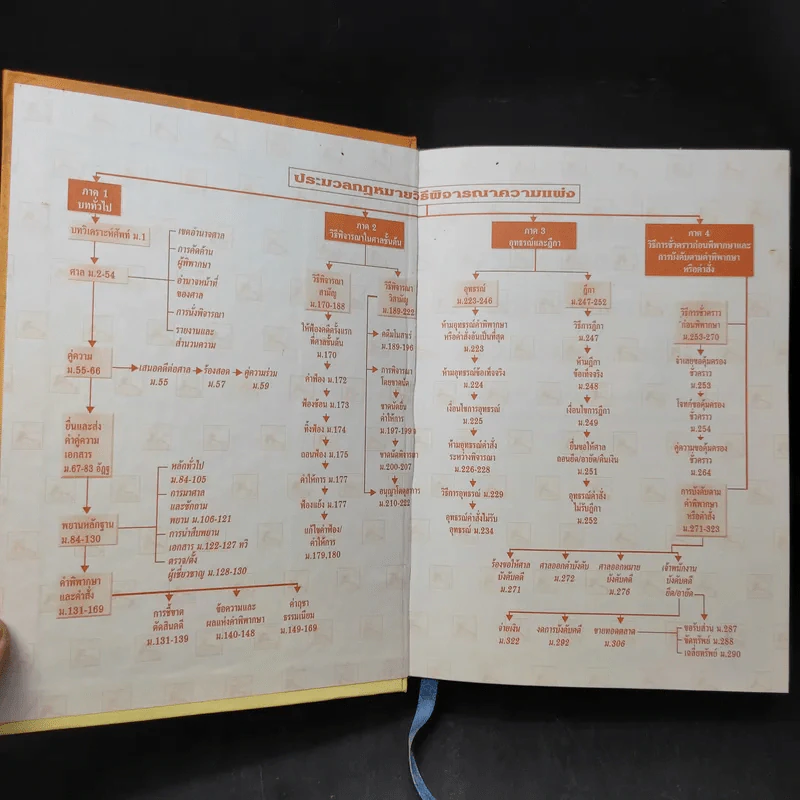 ประมวลกฎหมายวิธีพิจารณาความแพ่ง
ภาค 1
บททั่วไป
บทวิเคราะห์ศัพท์ ม.1
ศาล ม.2-54
เขตอำนาจศาล
การคัดค้าน
ผู้พิพากษา
อำนาจหน้าที่
ของศาล
การนั่งพิจารณา
รายงานและ
สำนวนความ
คู่ความ
ม.55-66
เสนอคดีต่อศาล
ม.55
ร้องสอด
ม.57
คู่ความร่วม
ม.59
ยื่นและส่ง
คำคู่ความ
เอกสาร
ม.67-83 อัฏฐ
พยานหลักฐาน
ม.84-130
หลักทั่วไป
ม.84-105
การมาศาล
และซักถาม
พยาน ม.106-121
การนำสืบพยาน
เอกสาร ม.122-127 ทวิ
ตรวจ/ตั้ง
ผู้เชี่ยวชาญ ม.128-130
คำพิพากษา
และคำสั่ง
ม.131-169
การชี้ขาด
ตัดสินคดี
ม.131-139
ข้อความและ
ผลแห่งคำพิพากษา
ม.140-148
ค่าฤชา
ธรรมเนียม
ม.149-169
ภาค 2
วิธีพิจารณาในศาลชั้นต้น
วิธีพิจารณา
สามัญ
ม.170-188
ให้ฟ้องคดีครั้งแรก
ที่ศาลชั้นต้น
ม.170
คำฟ้อง ม.172
ฟ้องซ้อน ม.173
ทิ้งฟ้อง ม.174
ถอนฟ้อง ม.175
คำให้การ ม.177
ฟ้องแย้ง ม.177
แก้ไขคำฟ้อง/
คำให้การ
ม.179,180
วิธีพิจารณา
วิสามัญ
ม.189-222
คดีมโนสาเร่
ม.189-196
การพิจารณา
โดยขาดนัด
ขาดนัดยื่น
คำให้การ
ม.197-199
ขาดนัดพิจารณา
ม.200-207
อนุญาโตตุลาการ
ม.210-222
ภาค 3
อุทธรณ์และฎีกา
อุทธรณ์
ม.223-246
ห้ามอุทธรณ์คำพิพากษา
หรือคำสั่งอันเป็นที่สุด
ม.223
ห้ามอุทธรณ์ข้อเท็จจริง
ม.224
เงื่อนไขการอุทธรณ์
ม.225
ห้ามอุทธรณ์คำสั่ง
ระหว่างพิจารณา
ม.226-228
วิธีการอุทธรณ์ ม.229
อุทธรณ์คำสั่งไม่รับ
อุทธรณ์ ม.234
ฎีกา
ม.247-252
วิธีการฎีกา
ม.247
ห้ามฎีกา
ข้อเท็จจริง
ม.248
เงื่อนไขการฎีกา
ม.249
ยื่นขอให้ศาล
ถอนยึด/อายัด/คืนเงิน
ม.251
อุทธรณ์คำสั่ง
ไม่รับฎีกา
ม.252
ภาค 4
วิธีการชั่วคราวก่อนพิพากษาและ
การบังคับตามคำพิพากษา
หรือคำสั่ง
วิธีการชั่วคราว
ก่อนพิพากษา
ม.253-270
จำเลยขอคุ้มครอง
ชั่วคราว
ม.253
โจทก์ขอคุ้มครอง
ชั่วคราว
ม.254
คู่ความขอคุ้มครอง
ชั่วคราว
ม.264
การบังคับตาม
คำพิพากษา
หรือคำสั่ง
ม.271-323
ร้องขอให้ศาล
บังคับคดี
ม.271
ศาลออกคำบังคับ
ม.272
ศาลออกหมาย
บังคับคดี
ม.276
เจ้าพนักงาน
บังคับคดี
ยึด/อายัด
จ่ายเงิน
ม.322
งดการบังคับคดี
ม.292
ขายทอดตลาด
ม.306
ขอรับส่วน ม.287
ขัดทรัพย์ ม.288
เฉลี่ยทรัพย์ ม.290